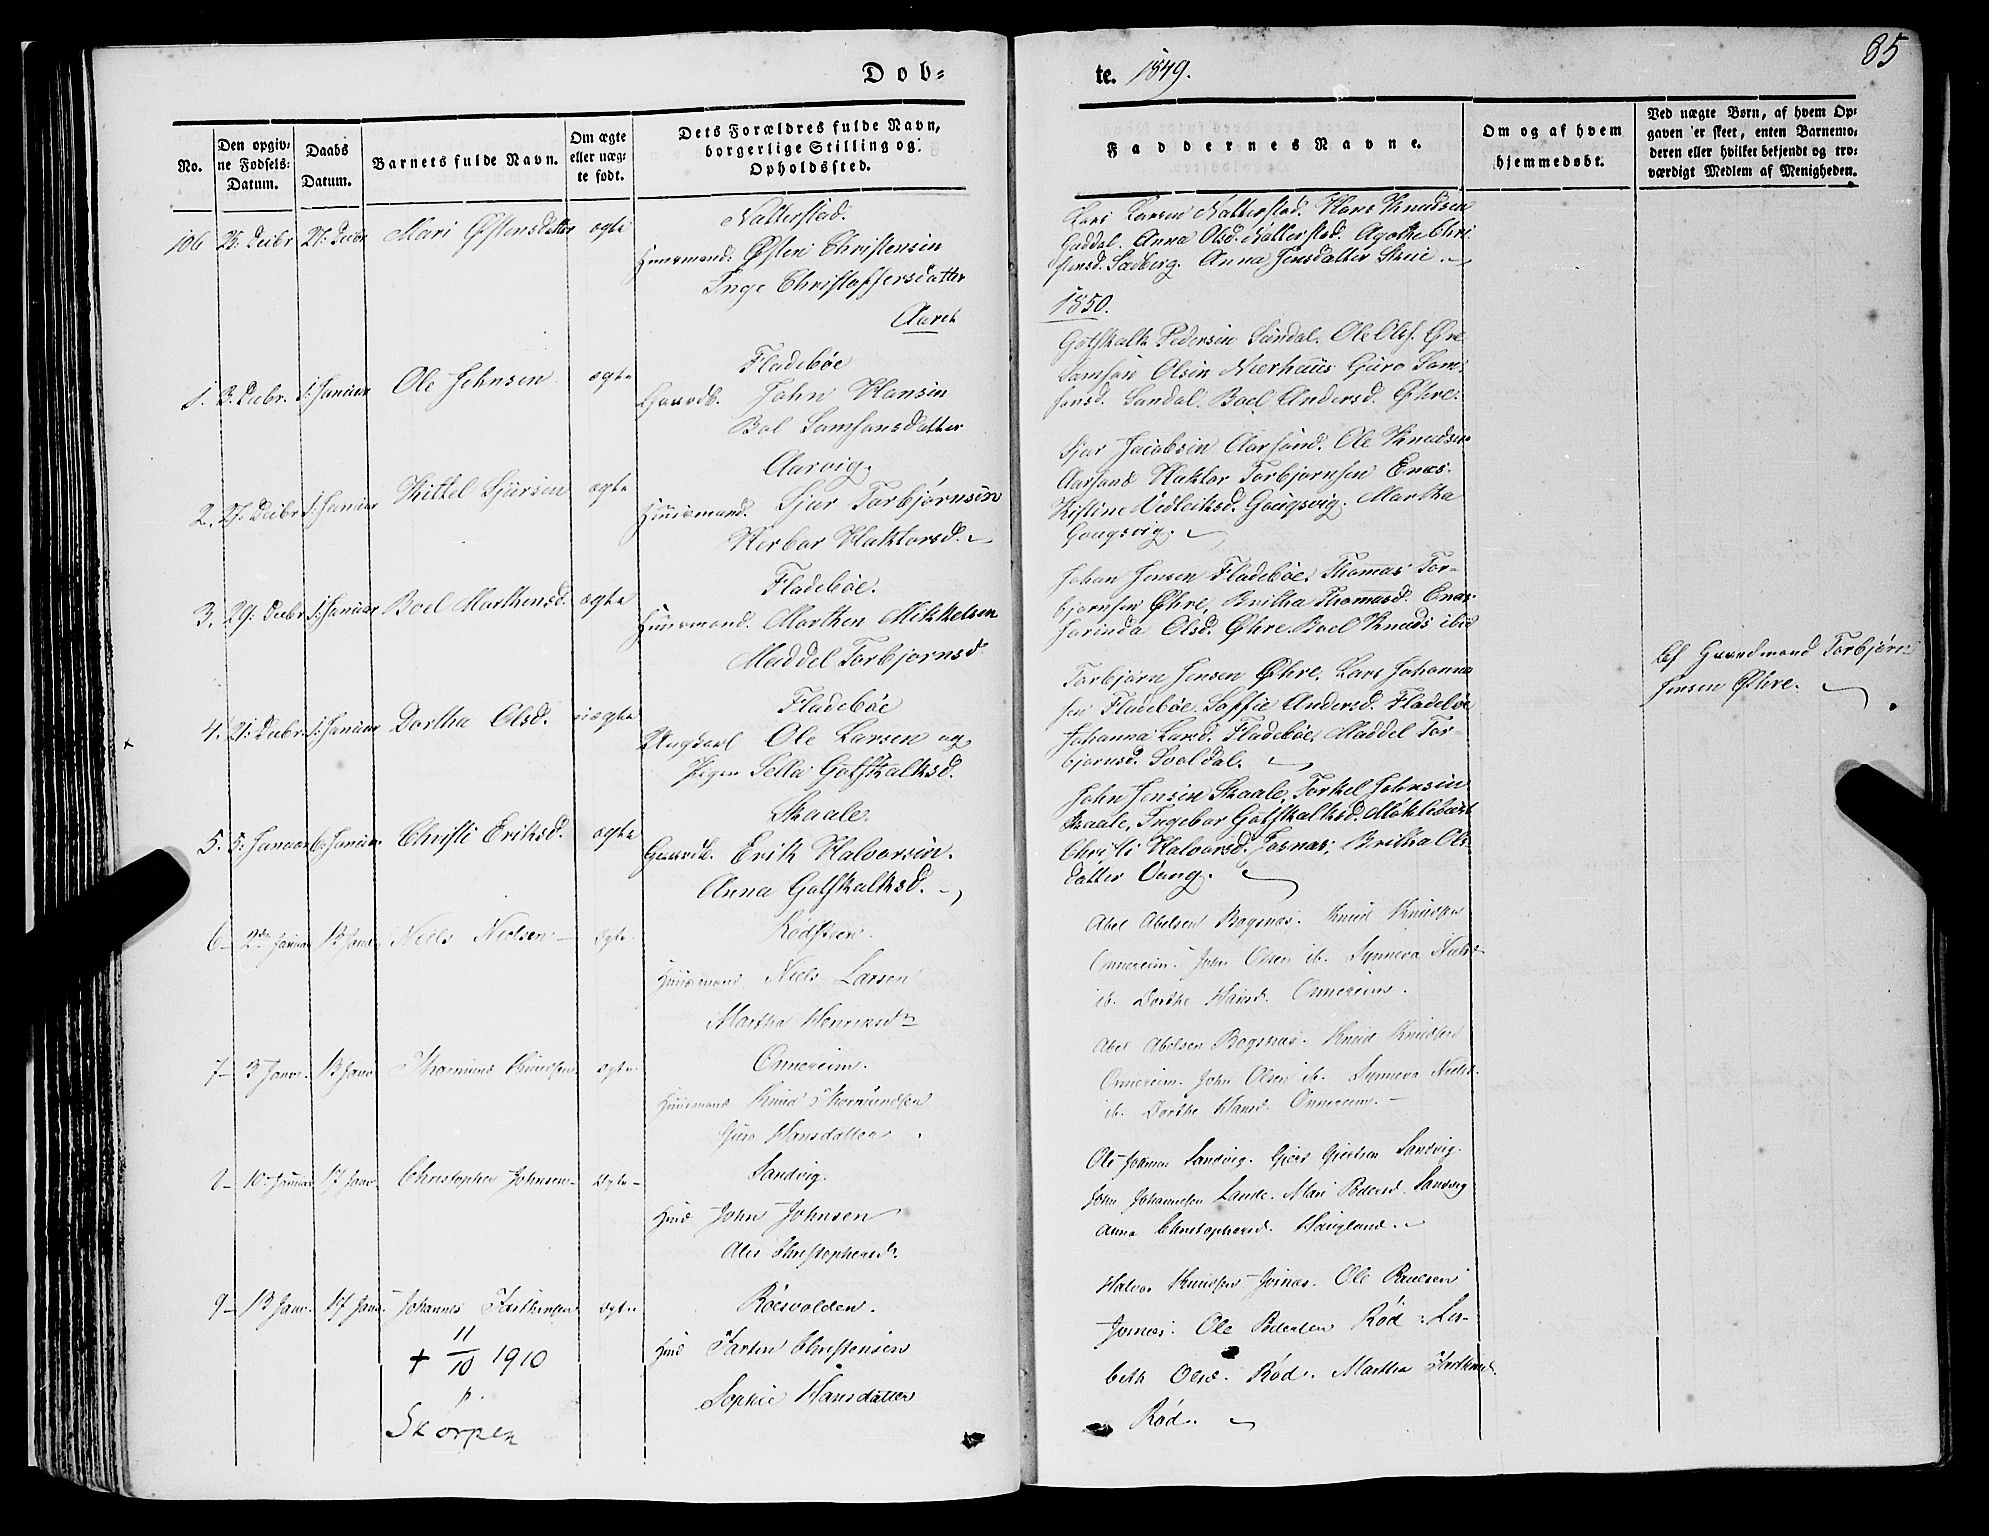 85
Dob=
te. 1849.
No.
Den opgiv=
ne Fødsels=
Datum.
Daabs
Datum.
Barnets fulde Navn.
Om ægte
eller uæg=
te født.
Dets Forældres fulde Navn,
borgerlige Stilling og
Opholdssted.
Faddernes Navne.
Om og af hvem
hjemmedøbt.
Ved uægte Børn, af hvem Op=
gaven er skeet, enten Barnemo=
deren eller hvilket bekjendt og tro=
værdigt Medlem af Menigheden.
106 Decbr Mari Østensdatter ægte Natterstad.
Huusmand. Østen Christensen
Inge Christophersdatter
Lars Larsen Natterstad. Hans Knudsen
Gaddal. Anna Olsd. Natterstad. Agathe Chri
stensd. Sæberg. Anna Jensdatter Skeie.
Aaret
1850.
1. 3. Decbr. 1. Januar Ole Johnsen ægte Fladebøe
Gaardb. John Hansen
Bol Samsonsdatter
Gotskalk Pedersen Sundal. Ole Ols. Øhre
Samson Olsen Nierhuus Guro Sam
sonsd. Sandal. Boel Andersd. Øhre.
2. 27. Decbr 1. Januar Kittel Sjursen ægte Aarvig.
Huusmand. Sjur Torbjørnsen
Herbor Haktorsd.
Sjur Jacobsen Aarsand. Ole Knudsen
Aarsand Haktor Torbjørnsen Enæs.
Kistine Vidleiksd. Gougsvig. Martha
Gougsvig.
3. 29. Decbr 1. Januar Boel Marthensd. ægte Fladebøe.
Huusmand. Marthen Mikkelsen
Maddel Torbjørnsd
Johan Jensen Fladebøe. Thomas Tor=
bjørnsen Øhre, Britha Thomasd. Enæs
Olsd. Øhre. Boel Knuds ibid
4. 21. Decbr 1. Januar Dortha Olsd. uægte Fladebøe
Ungkarl Ole Larsen og
Pigen Sella Gotskalksd.
Torbjørn Jensen Øhre. Lars Johanne
sen Fladebøe. Soffie Andersd. Fladebøe
Johanna Larsd. Fladebøe. Maddel Tor=
bjørnsd. Soeldal.
Af Gaardmand Torbjørn
Jensen Øhre.
5. 5. Januar 6. Januar Christi Eriksd. ægte Skaale.
Gaardb. Erik Halvorsen.
Anna Gotskalksd.
John Jensen Skaale, Torkel Johnsen
Skaale, Ingebor Gotskalksd. Møklebust
Christi Halvorsd. Josnæs, Britha Ols
datter Vang.
6 Januar Niels Nielsen ægte Rødsteen.
Huusmand Niels Larsen
Martha Henriksdr
Abel Abelsen Bogsnæs. Knud Knudsen
Onnereim. John Olsen ib. Synneva Niels
ib. Dorthe Hansd. Onnereim.
7 3 Janr. 13 Janr Thormund Knudsen ægte Onnereim.
Huusmand Knud Thormundsen
Guro Hansdatter
Abel Abelsen Bogsnæs. Knud Knudsen
Onnereim. John Olsen ib. Synneva Niels.
ib. Dorthe Hansd. Onnereim.
8 10 Januar 17 Janr. Christopher Johnsen ægte Sandvig.
Huus John Johnsen
Christophersdr.
Ole Sandvig. Gjert Gjertsen Sandvig.
John Johannesen Lande. Mari Pedersd. Sandvig
Anna Christophersd. Haugland.
9 13 Janr. 17 Janr. Johannes Torstensen ægte Røesvolden.
Huus Torsten Christensen
Sophie Hansdatter
Halvor Knudsen Josnæs. Ole Paulsen
Josnæs. Ole Pedersen Rød. Lis=
beth Olsd. Rød. Martha
Rød.
+ 11/10 1910
p.
Skorpen